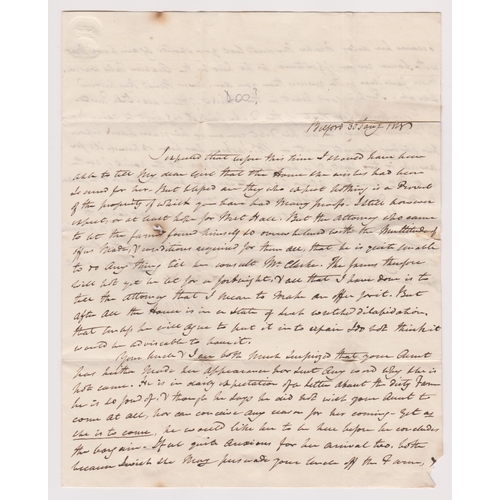 Belford 30 Jany 1828
I expected that before this time I should have been
able to tell my dear Girl that the House she wished had been
secured for her. But blessed are they who expect nothing is a Proverb
of the propriety of which you have had many proofs. I still however
expect, or at least hope for Met Hall. But the Attorney who came
to let the farms found himself so overwhelmed with the Multitude of
offers made, & conditions required for them all, that he is quite unable
to do any thing till he consults Mr Clarke. The farms therefore
will not yet be let for a fortnight, & all that I have done is to
tell the Attorney that I mean to make an offer for it. But
after all the House is in a state of such wretched dilapidation,
that unless he will agree to put it in to repair I do not think it
would be adviseable to have it.
Your Uncle & I are both much surprized that your Aunt
has neither made her appearance nor sent any word why she is
not come. He is in daily expectation of a letter about the Dirty Farm
he is so fond of, & though he says he did not wish your Aunt to
come at all, nor can conceive any reason for her coming - Yet as
she is to come, he would like her to be here before he concludes
the bargain. I feel quite anxious for her arrival too, both
because I wish she may persuade your Uncle off the Farm, &